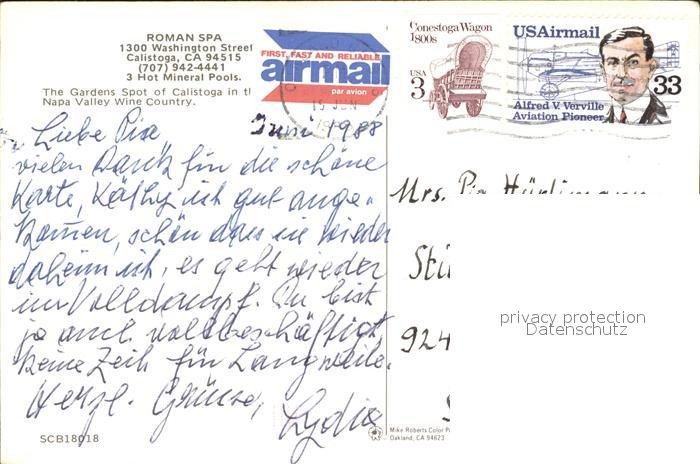 ROMAN SPA
1300 Washington Street
Calistoga, CA 94515
(707) 942-4441
3 Hot Mineral Pools.
The Gardens Spot of Calistoga in th
Napa Valley Wine Country.
FIRST, FAST AND RELIABLE
airmail
par avion
15 JUN
Conestoga Wagon
1800s
USA
3
USAirmail
33
Alfred V. Verville
Aviation Pioneer
Liebe Pia Juni 1988
vielen Dank für die schöne
Karte, Käthy ist gut ange-
kom̄en, schön dass sie wieder
daheim ist, es geht wieder
im Volldampf. Du bist
ja auch vollbeschäftigt,
keine Zeit für Langweile.
Herzl. Grüsse,
Lydia
Mrs. Pia Hürlimann
924
privacy protection
Datenschutz
SCB18018
Mike Roberts Color P
Oakland, CA 94623